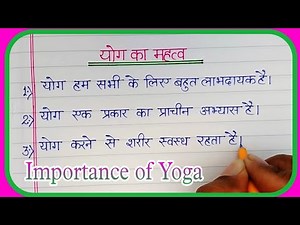 योग का महत्व
1) योग हम सभी के लिए बहुत लाभदायक है।
2) योग एक प्रकार का प्राचीन अभ्यास है।
3) योग करने से शरीर स्वस्थ रहता है।
Importance of Yoga